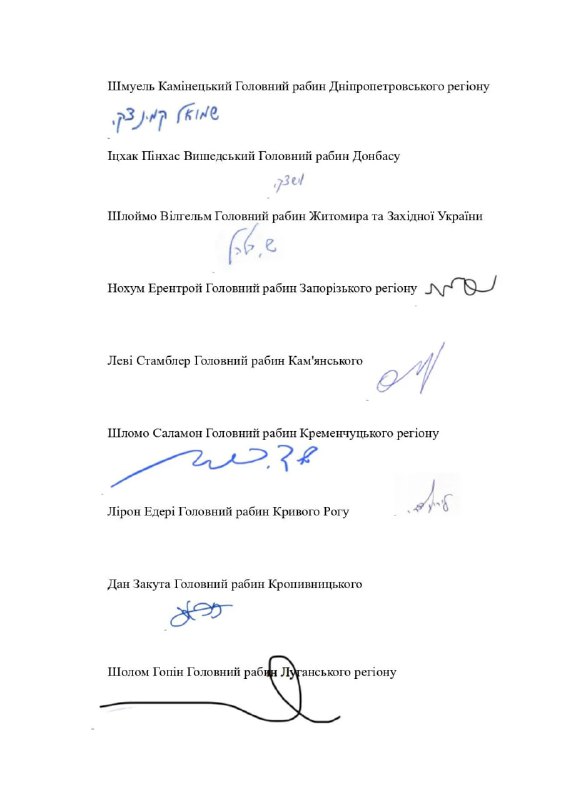 Шмуель Камінецький Головний рабин Дніпропетровського регіону
שמואל קמינצקי
Іцхак Пінхас Вишедський Головний рабин Донбасу
Шлоймо Вілгельм Головний рабин Житомира та Західної України
Нохум Ерентрой Головний рабин Запорізького регіону
Леві Стамблер Головний рабин Кам'янського
Шломо Саламон Головний рабин Кременчуцького регіону
Лірон Едері Головний рабин Кривого Рогу
Дан Закута Головний рабин Кропивницького
Шолом Гопін Головний рабин Луганського регіону